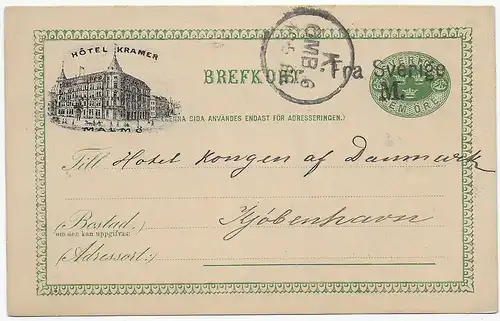 HÔTEL KRAMER
MALMÖ
BREFKORT.
K.
OMB. 6
Fra Sverige
M.
SVERIGE
FEM ÖRE
(DENNA SIDA ANVÄNDES ENDAST FÖR ADRESSERINGEN.)
Till Hotel Kongen af Danmark
(Bostad.)
om den kan uppgifvas:
Kjöbenhavn
(Adressort:)